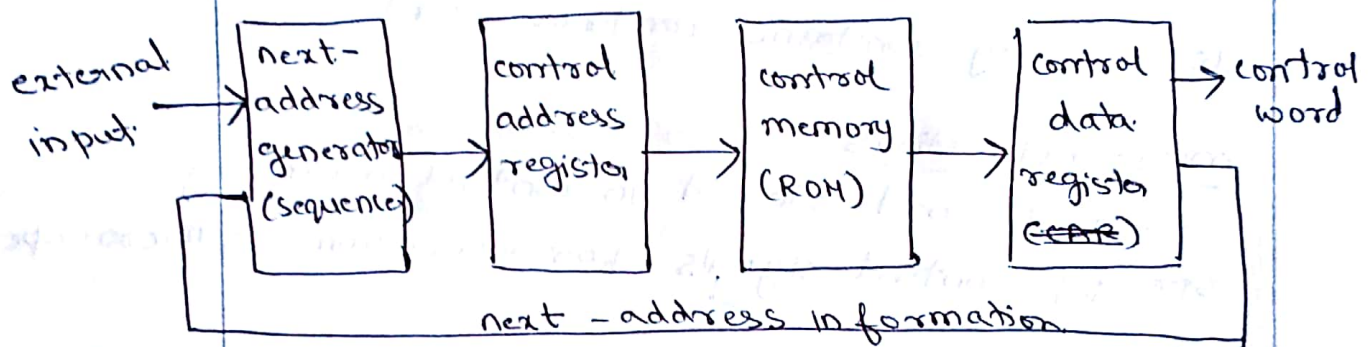 external
input.
next-
address
generator
(sequence)
control
address
register
control
memory
(ROM)
control
data.
register
(CAR)
control
word
next - address information